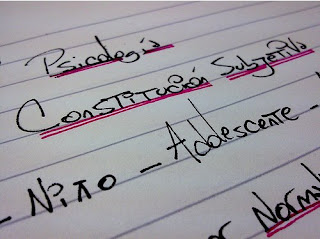 Psicología
Constitución Subjetiva
- Niño - Adolescente -
Normal